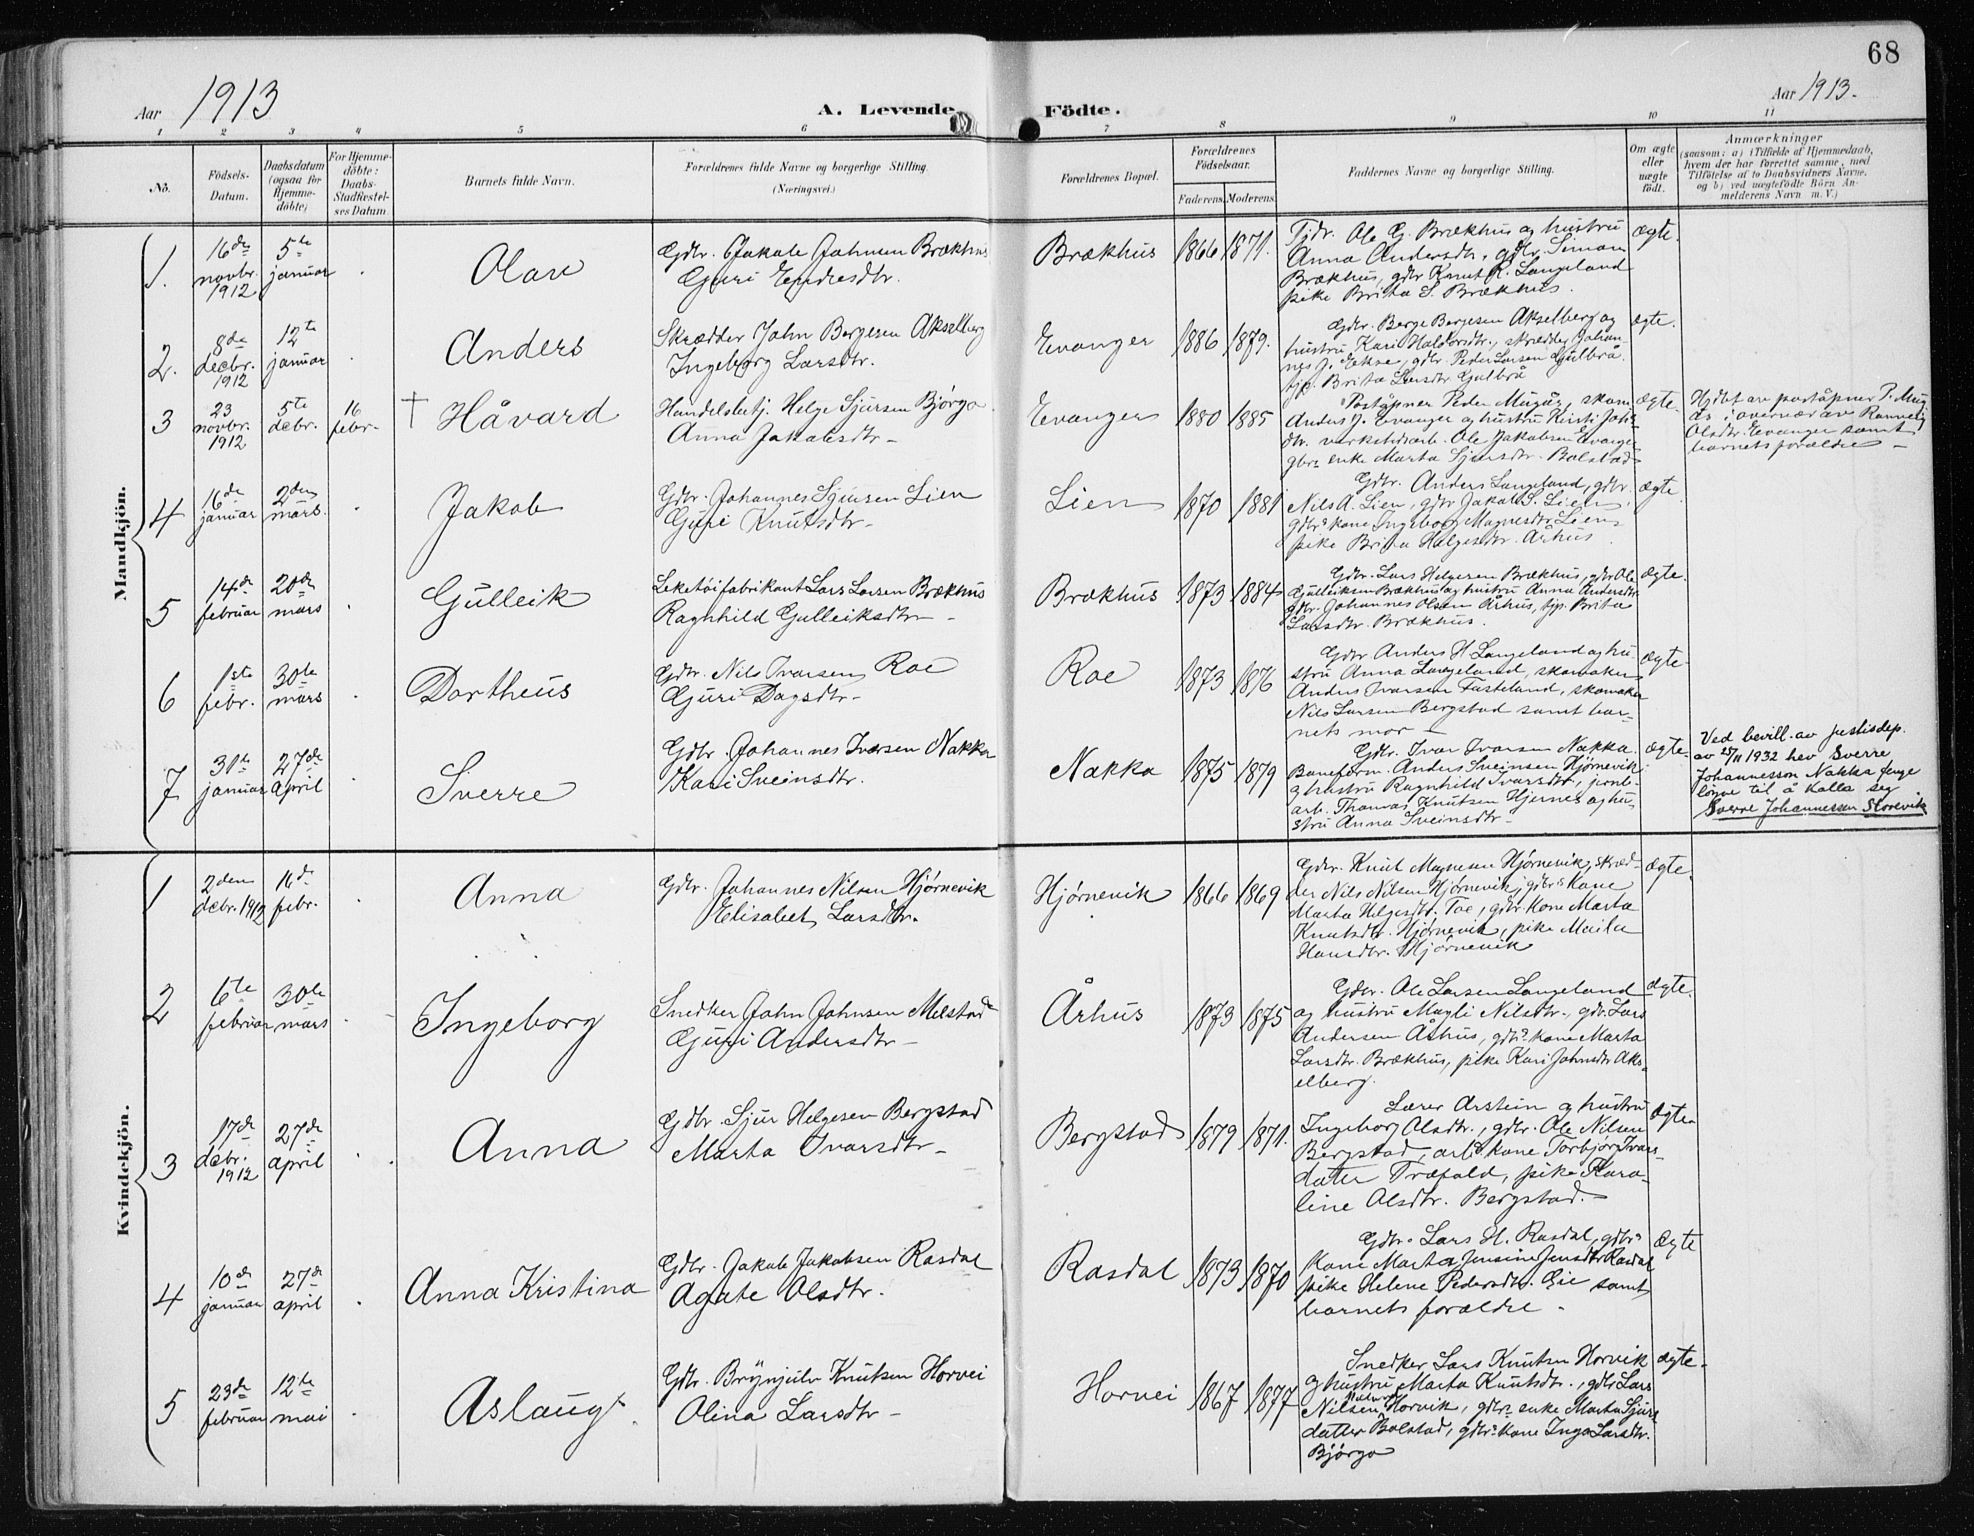 68
Aar 1913
A. Levende Födte.
Aar 1913.
1 2 3 4 5 6 7 8 9 10 11
No.
Födsels-Datum.
Daabsdatum (ogsaa for Hjemme-döbte)
For Hjemme-döbte: Daabs-Stadfæstel-ses Datum
Barnets fulde Navn.
Forældrenes fulde Navne og borgerlige Stilling.
(Næringsvei.)
Forældrenes Bopæl.
Forældrenes Födselsaar.
Faderens. Moderens.
Faddernes Navne og borgerlige Stilling.
Om ægte eller uægte födt.
Anmærkninger
(saasom: a) i Tilfælde af Hjemmedaab,
hvem der har forrettet samme, med
Tilföielse af to Daabsvidners Navne,
og b) ved uægtefödte Börn An-
melderens Navn m. V.)
Mandkjön.
1. 16de novbr. 1912 5te januar
Olav
Gdbr. Jakob Johnsen Brækhus
Guri Endresdtr.
Brækhus 1866 1871.
Ole G. Brækhus og hustru
Anna Andersdtr, gdbr. Simon
Brækhus, gdbr Knut K. Langeland
pike Brita S. Brækhus.
ægte.
2. 8de decbr. 1912 12te januar
Anders
Skrædder John Bergesen Akselberg
Ingeborg Larsdtr.
Evanger 1886 1879.
Gdbr. Berge Bergesen Akselberg og
hustru Kari Haldorsdtr., skrædder Johan-
nes J. Ekse, gdbr. Peder Larsen Gulbrå
tjp. Brita Larsdtr Gulbrå
ægte.
3 23 novbr. 1912 5te debr. 16 febr-
† Håvard
Handelsbetj. Helge Sjursen Bjørgo
Anna Jakobsdtr-
Evanger 1880 1885
Poståpner Peder Mugås, skom.
Anders J. Evanger og hustru Kirsti Joh-
dtr. verkstedsarb. Ole Jakobsen Evanger
gbrs enke Marta Sjursdtr. Bolstad
ægte-
Hjdbt av poståpner P. Mug-
ås i overvær av Ranveig
Olsdtr. Evanger samt
barnets forældre -
4 16de januar 2den mars.
Jakob
Gdbr. Johannes Sjursen Lien
Guri Knutsdtr-
Lien 1870 1881
Gdbr. Anders Langeland, gdbr.
Nils A. Lien, gdbr Jakob S. Lien,
gdbrs kone Ingeborg Magnesdtr Lien,
pike Brita Helgesdtr. Århus.
ægte.
5 14de februar 20de mars
Gulleik
Leketøifabrikant Lars Larsen Brækhus
Ragnhild Gulleiksdtr -
Brækhus 1873 1884
Gdbr. Lars Helgesen Brækhus, gdbr Ole
Gulleiksen Brækhus og hustru Anna Andersdtr
gdbr. Johannes Olsen Århus, tjp. Brita
Larsdtr. Brækhus.
ægte.
6 1ste febr. 30te mars
Dortheus
Gdbr. Nils Ivarsen Roe
Guri Dagsdtr-
Roe 1873 1876
Gdbr Anders H Langeland og hu-
stru Anna Langeland, skomaker
Anders Ivarsen Fasteland, skomaker
Nils Larsen Bergstad samt bar-
nets mor -
ægte-
7 31te januar 27de april
Sverre
Gdbr. Johannes Iversen Nakka
Kari Sveinsdtr.
Nakka 1875 1879
Gdbr. Ivar Ivarsen Nakka.
Baneform. Anders Sveinsen Hjørnevik
og hustru Ragnhild Ivarsdtr, jernb-
arb. Thomas Knutsen Hjernes og hu-
stru Anna Sveinsdtr-
ægte-
Ved bevill. av justisdep.
av 25/11 1932 hev Sverre
Johannesson Nakka fenge
løyve til å kalla seg
Sverre Johannessen Horevik
Kvindekjön.
1 2den debr. 1912 16de febr.
Anna
Gdbr. Johannes Nilsen Hjørnevik
Elisabet Larsdtr.
Hjørnevik 1866 1869
Gdbr. Knut Magnesen Hjørnevik, skræd-
der Nils Nilsen Hjørnevik, gdbrs kone
Marta Helgesdtr. Toe, gdbr. kone Marta
Knutsdtr. Hjørnevik, pike Maila
Hansdtr. Hjørnevik
ægte.
2 6te februar 30te mars
Ingeborg
Snedker John Johnsen Melstad
Guri Andersdtr-
Århus 1873 1875
Gdbr. Ole Larsen Langeland
og hustru Magli Nilsdtr., gdbr. Lars
Andersen Århus, gdbs kone Marta
Larsdtr. Brækhus, pike Kari Johnsdtr Aks-
elberg.
ægte.
3 17de debr. 1912 27de april
Anna
Gdbr. Sjur Helgesen Bergstad
Marta Ivarsdtr-
Bergstad 1879 1871.
Lærer Arstein og hustru
Ingeborg Olsdtr., gdbr. Ole Nilsen
Bergstad, arb. kone Torbjørg Ivars-
datter Træfald, pike Karo-
line Olsdtr. Bergstad.
ægte
4 10de januar 27de april
Anna Kristina
Gdbr. Jakob Jakobsen Rasdal
Agate Olsdtr.
Rasdal 1873 1870
Gdbr. Lars H. Rasdal, gdbrs
kone Marta Jensine Jensdtr Rasdal
pike Helene Pedersdtr. Eie samt
barnets forældre -
ægte
5 23de februar 12te mai
Aslaug
Gdbr. Brynjulv Knutsen Horvei
Olina Larsdtr-
Horvei 1867 1877
Snedker Lars Knutsen Horvik
og hustru Marta Knutsdtr., gdbr Lars
Nilsen Horvik, gdbr. enke Marta Sjurs-
datter Bolstad, gdbrs kone Inga Larsdtr.
Bjørgo
ægte-